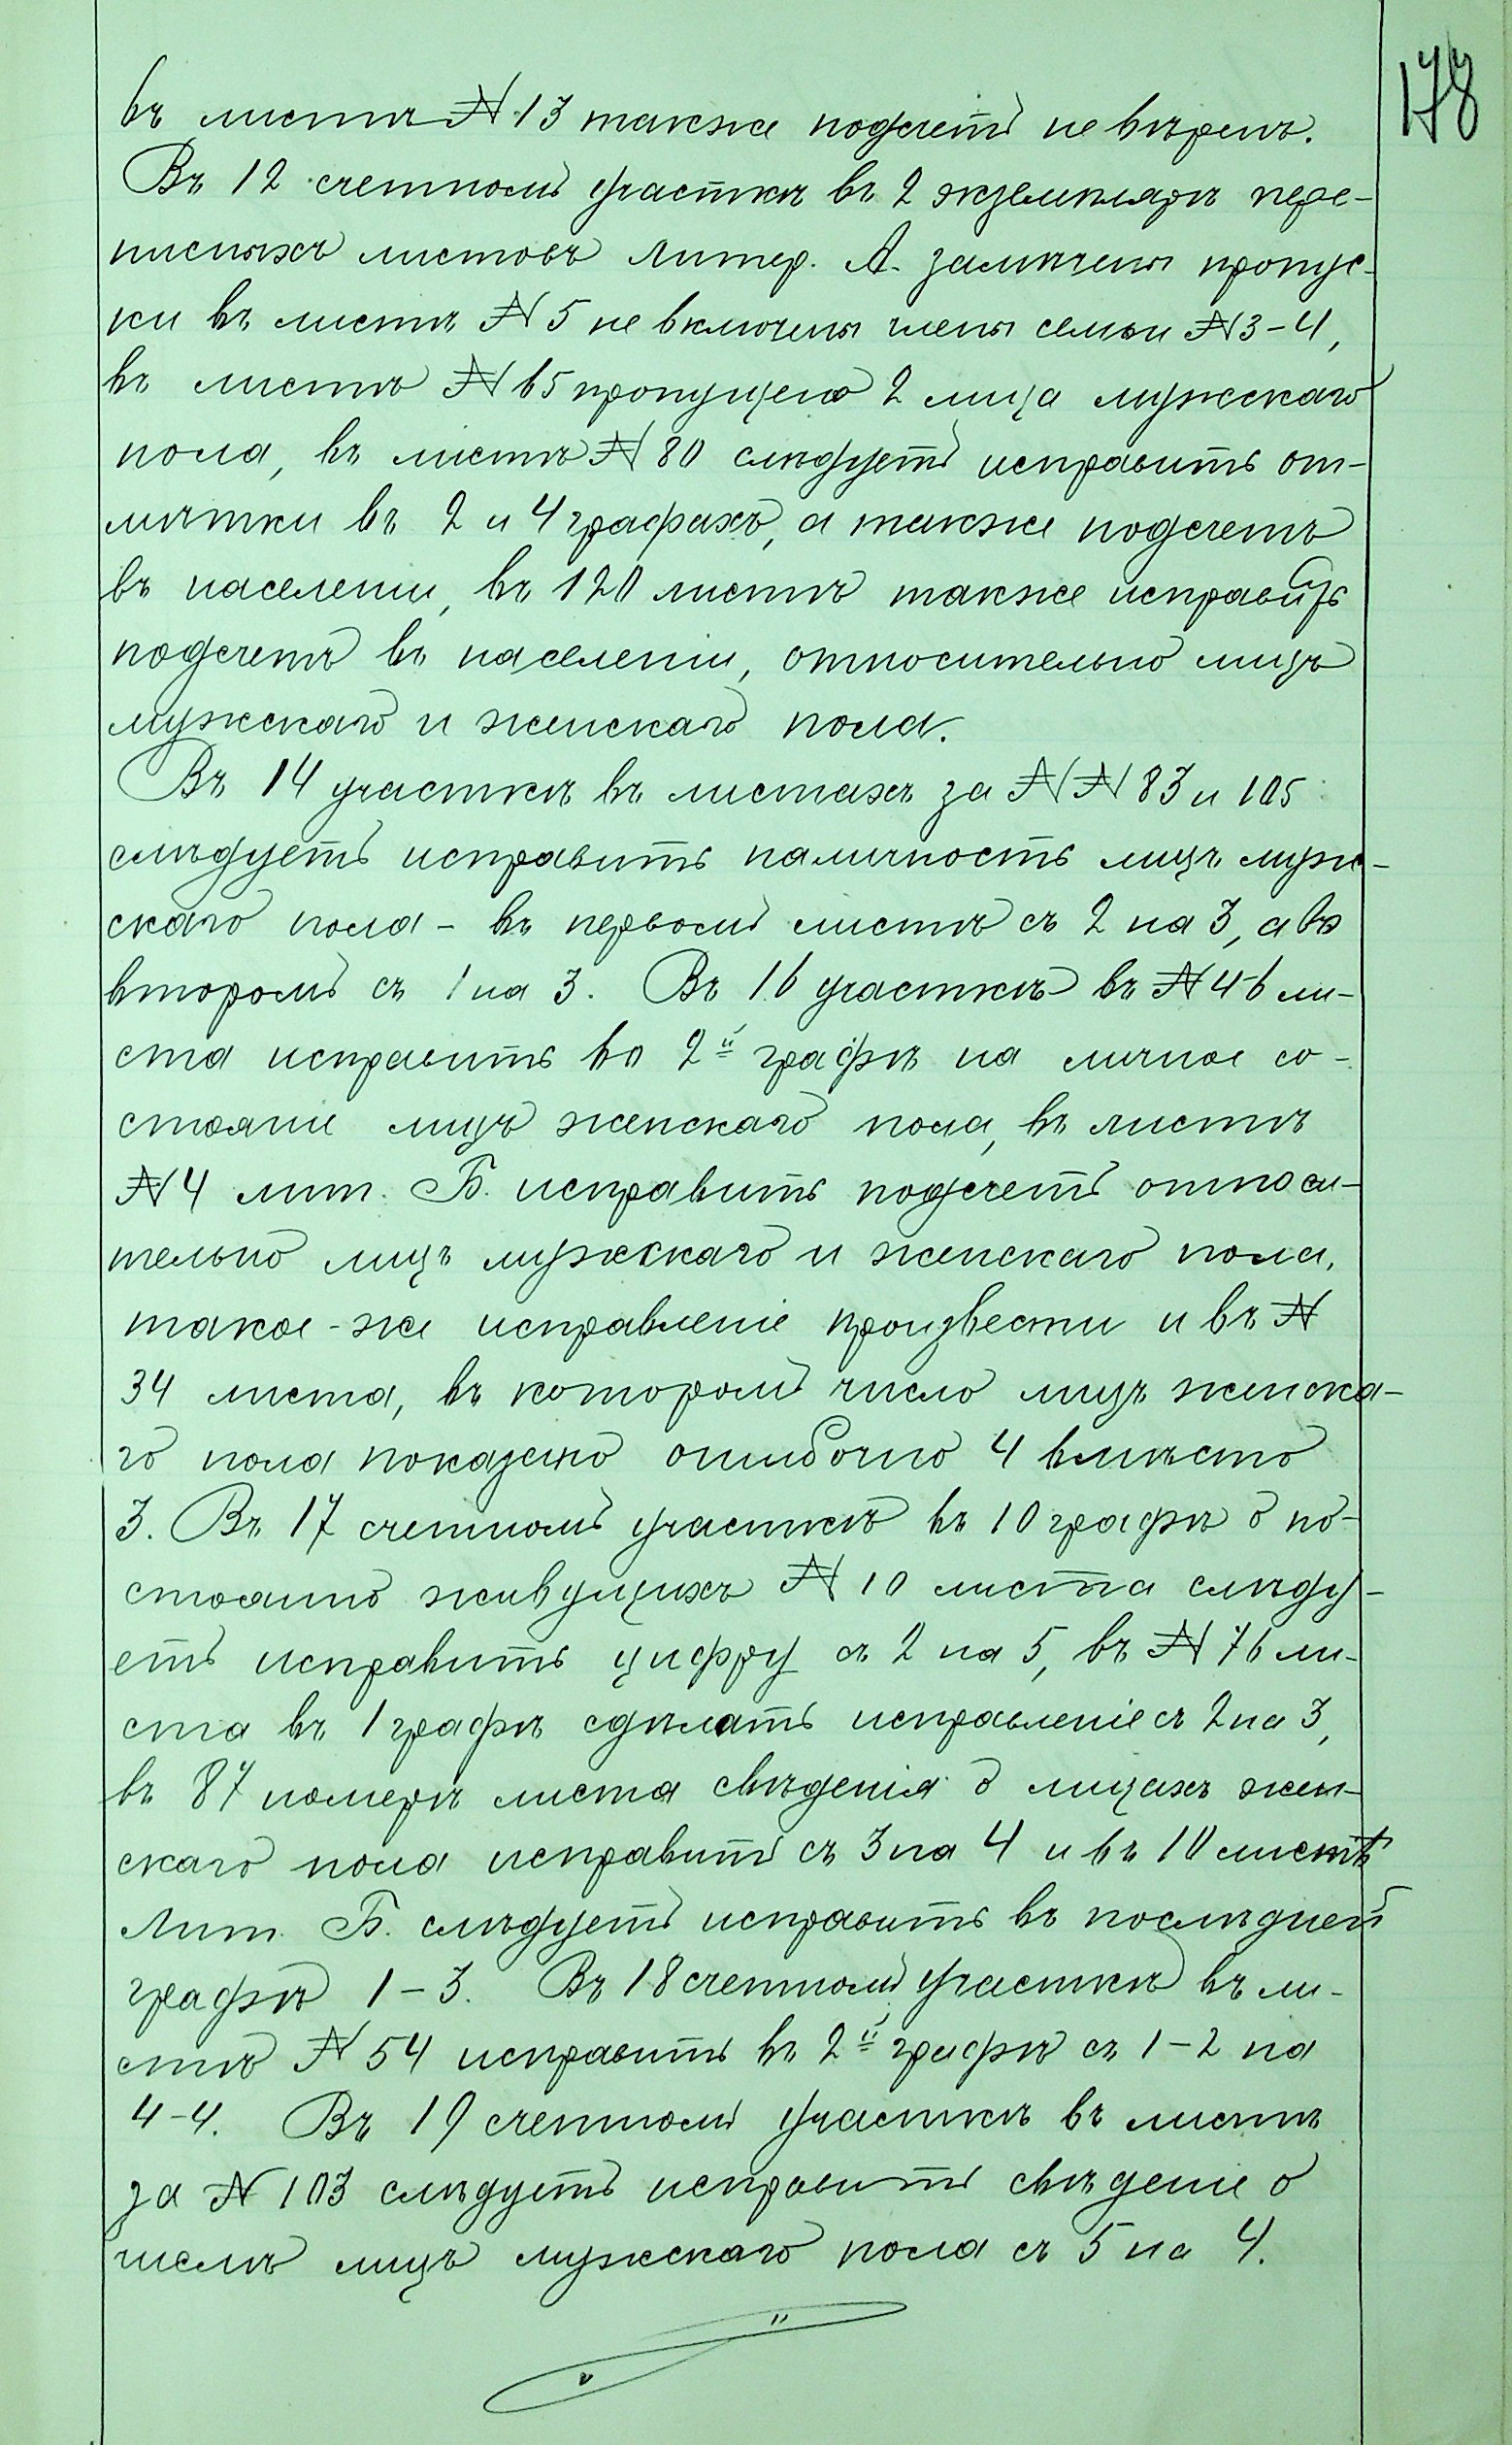 178
въ листѣ № 13 также подсчетъ не вѣренъ.
Въ 12 счетномъ участкѣ въ 2 экземплярѣ пере-
писныхъ листовъ литер. А. замѣчены пропус-
ки въ листѣ № 5 не включены члены семьи № 3-4,
въ листѣ № 65 пропущено 2 лица мужскаго
пола, въ листѣ № 80 слѣдуетъ исправить от-
мѣтки въ 2 и 4 графахъ, а также подсчетъ
въ населении, въ 120 листѣ также исправить
подсчетъ въ населеніи, относительно лицъ
мужскаго и женскаго пола.
Въ 14 участкѣ въ листахъ за №№ 83 и 105
слѣдуетъ исправить наличность лицъ муж-
скаго пола - въ первомъ листѣ съ 2 на 3, а въ
второмъ съ 1 на 3. Въ 16 участкѣ въ № 46 ли-
ста исправить во 2й графѣ на личное со-
стояніе лицъ женскаго пола, въ листѣ
№ 4 лит. Б. исправить подсчетъ относи-
тельно лицъ мужскаго и женскаго пола,
такое-же исправленіе произвести и въ №
34 листа, въ которомъ число лицъ женска-
го пола показано ошибочно 4 вмѣсто
3. Въ 17 счетномъ участкѣ въ 10 графѣ о по-
стоянно живущихъ № 10 листа слѣду-
етъ исправить цифру съ 2 на 5, въ № 76 ли-
ста въ 1 графѣ сдѣлать исправленіе съ 2 на 3,
въ 87 номерѣ листа свѣдѣнія о лицахъ жен-
скаго пола исправить съ 3 на 4 и въ 10 листѣ
Лит. Б. слѣдуетъ исправить въ послѣдней
графѣ 1-3. Въ 18 счетномъ участкѣ въ ли-
стѣ № 54 исправить въ 2й графѣ съ 1-2 на
4-4. Въ 19 счетномъ участкѣ въ листѣ
за № 103 слѣдуетъ исправить свѣдѣніе о
числѣ лицъ мужскаго пола съ 5 на 4.